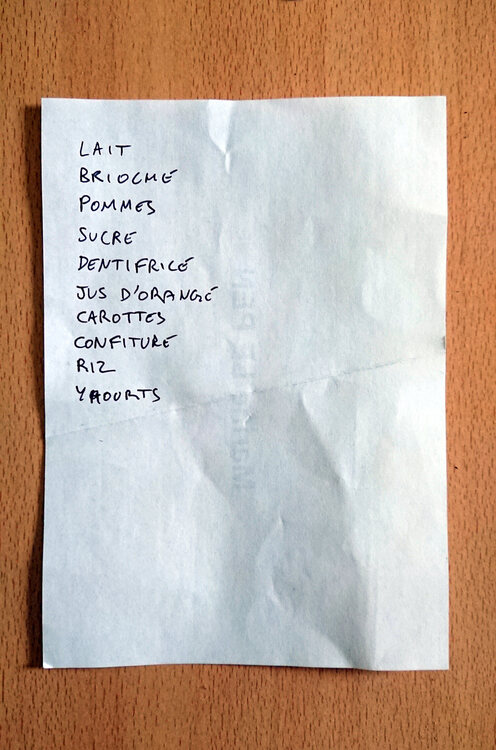 LAIT
BRIOCHE
POMMES
SUCRE
DENTIFRICE
JUS D'ORANGE
CAROTTES
CONFITURE
RIZ
YAOURTS